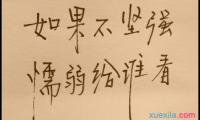 如果不坚强
懦弱给谁看
xuexila.com